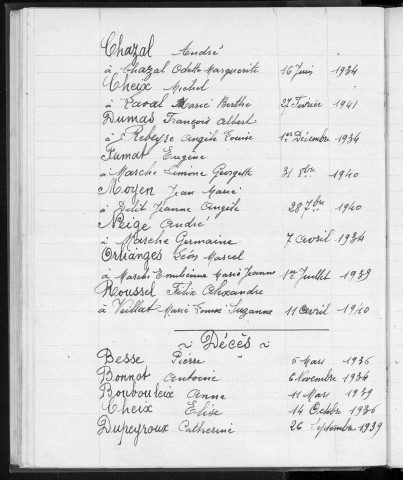 Chazal André
à Chazal Odette Marguerite 16 Juin 1934
Cheix Michel
à Laval Marie Berthe 27 Février 1941
Dumas François Albert
à Rebeyre Angèle Louise 1er Décembre 1934
Fumat Eugène
à Marche Simone Georgette 31 8bre 1940
Moyen Jean Marie
à Petit Jeanne Angèle 28 7bre 1940
Neige André
à Marche Germaine 7 avril 1934
Orliangès Léon Marcel
à Marche Emilienne Marie Jeanne 1er Juillet 1939
Roussel Félix Alexandre
à Veillat Marie Louise Suzanne 11 Avril 1940
~ Décès ~
Besse Pierre 5 Mars 1936
Bonnot Antoine 6 Novembre 1936
Boubouleix Anne 11 Mars 1939
Cheix Elise 14 Octobre 1936
Dupeyroux Catherine 26 Septembre 1939